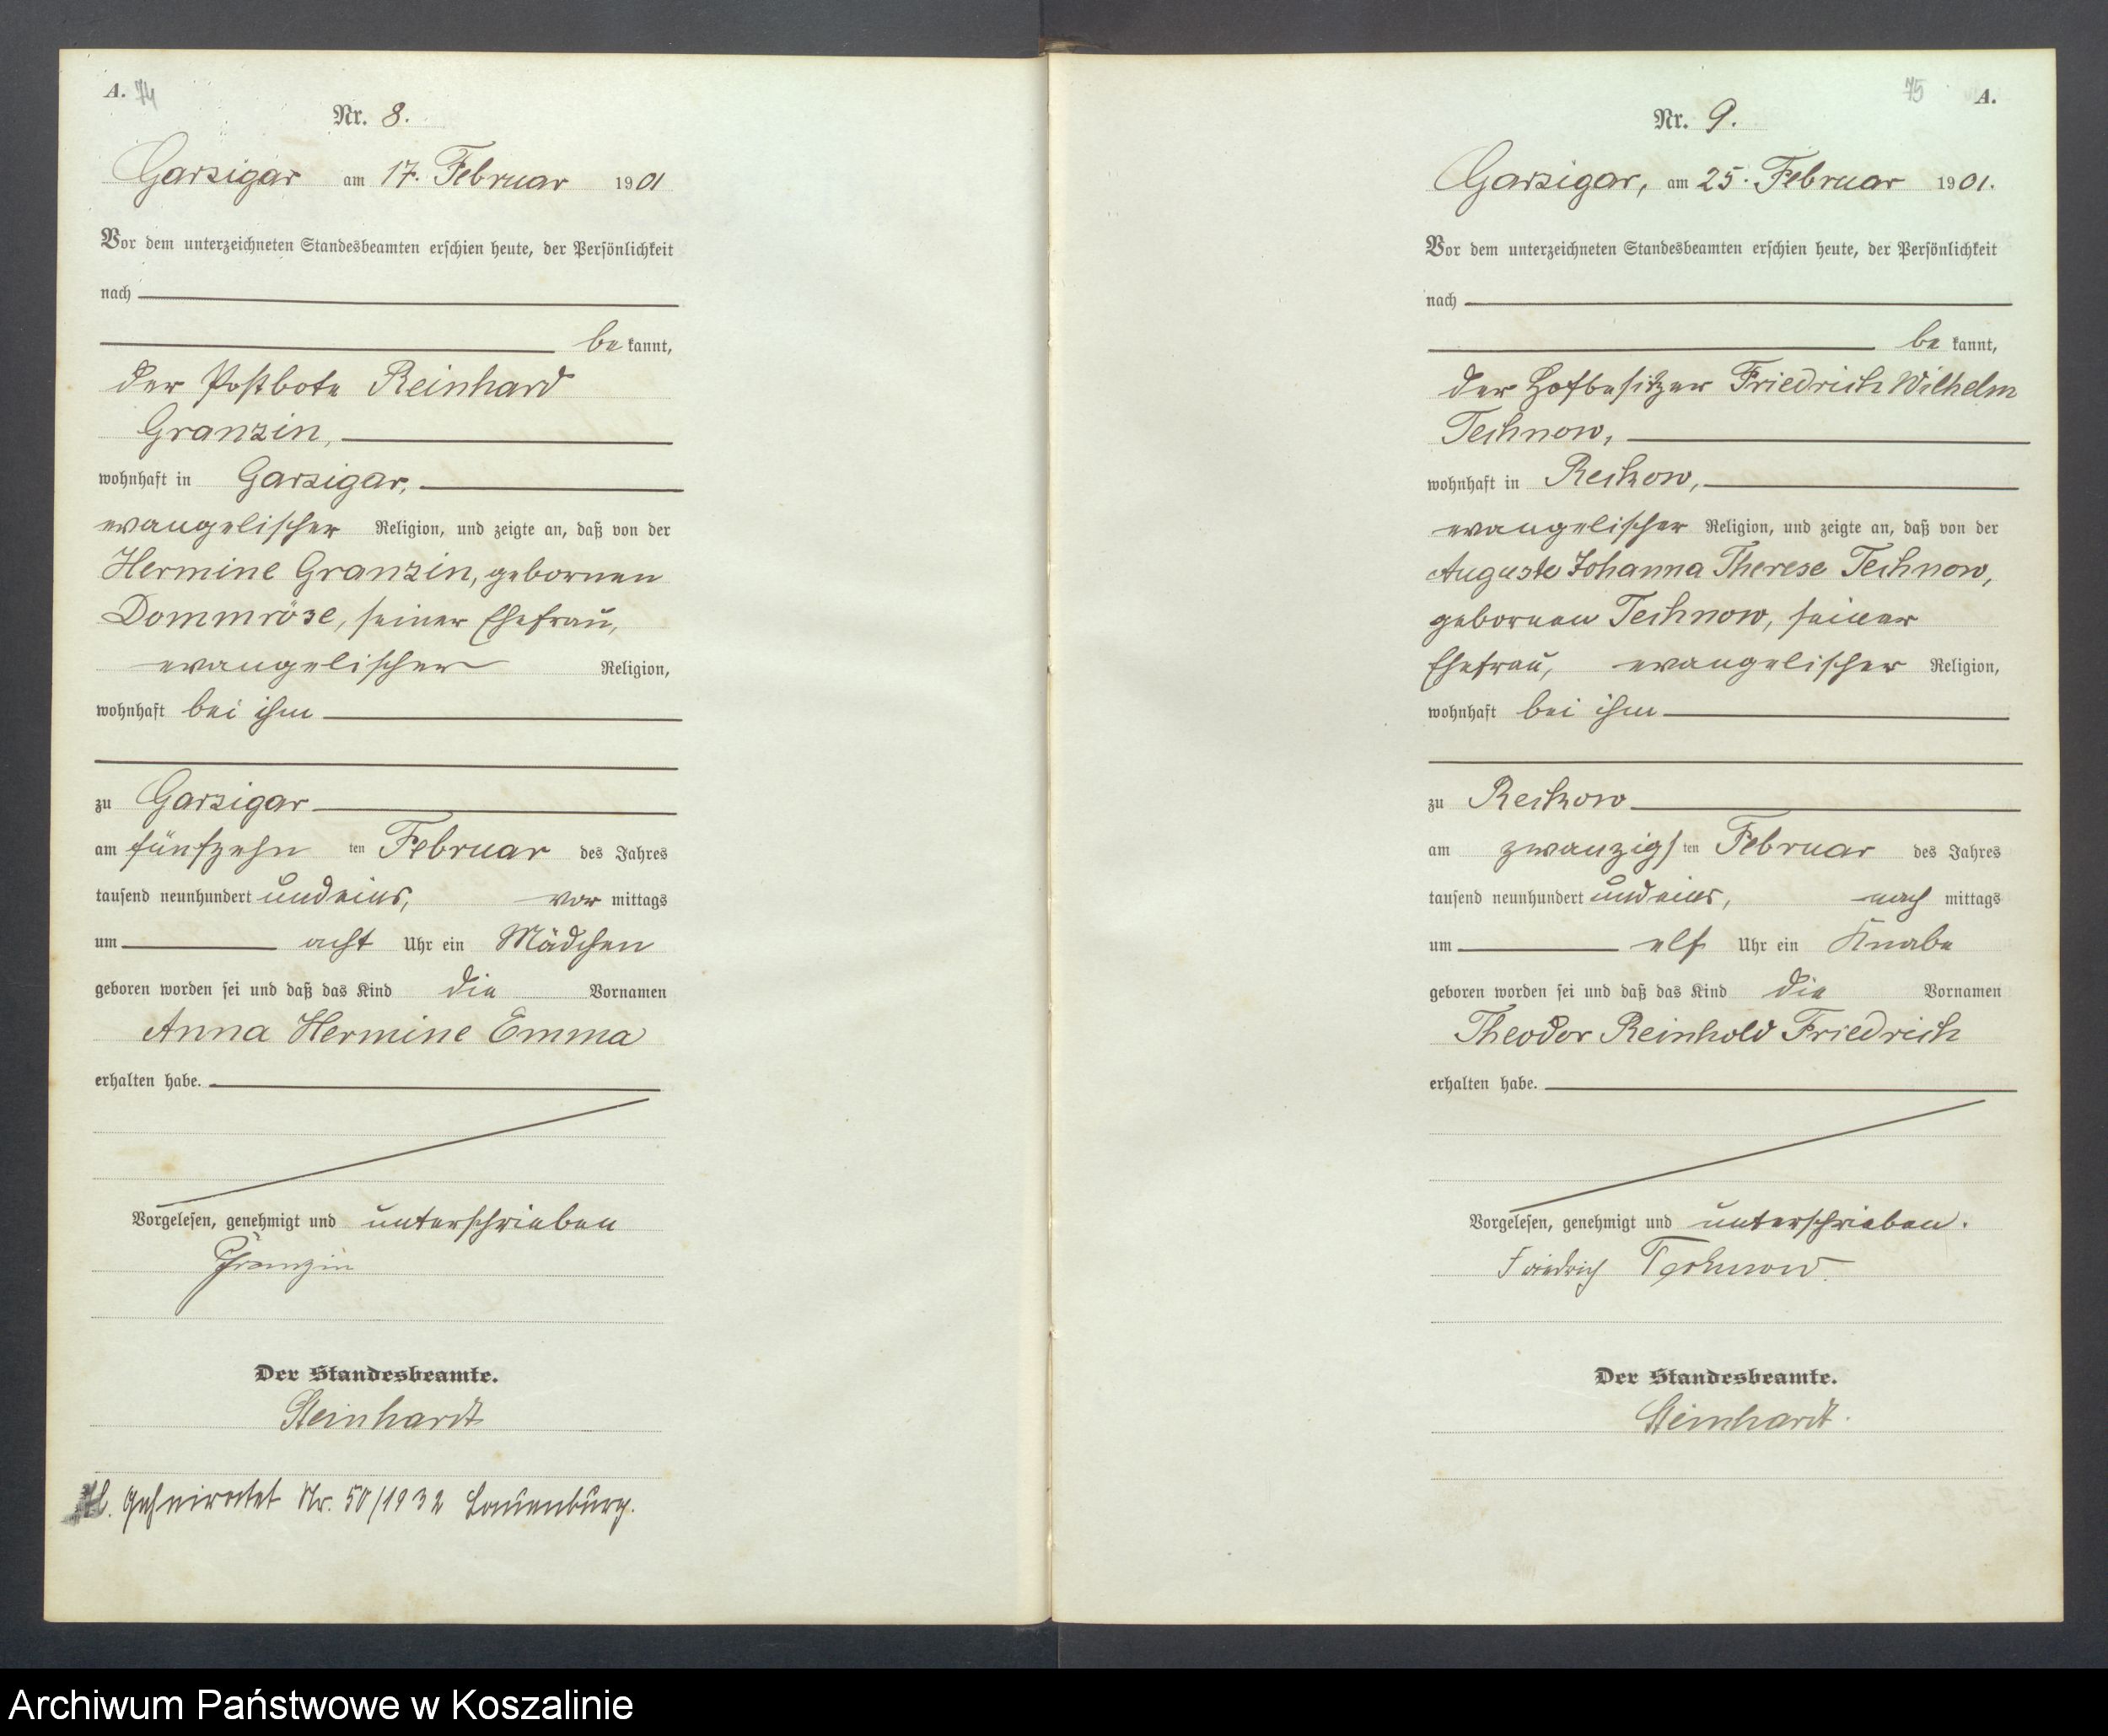 A. 74
Nr. 8.
Garzigar am 17. Februar 1901
Vor dem unterzeichneten Standesbeamten erschien heute, der Persönlichkeit
nach
be kannt,
der Postbote Reinhard
Granzin,
wohnhaft in Garzigar,
evangelischer Religion, und zeigte an, daß von der
Hermine Granzin, gebornen
Dommröse, seiner Ehefrau,
evangelischer Religion,
wohnhaft bei ihm
zu Garzigar
am fünfzehn ten Februar des Jahres
tausend neunhundert undeins, vor mittags
um acht Uhr ein Mädchen
geboren worden sei und daß das Kind die Vornamen
Anna Hermine Emma
erhalten habe.
Vorgelesen, genehmigt und unterschrieben
Granzin
Der Standesbeamte.
Steinhardt
Geheiratet Nr. 50/1932 Lauenburg.
75 A.
Nr. 9.
Garzigar, am 25. Februar 1901.
Vor dem unterzeichneten Standesbeamten erschien heute, der Persönlichkeit
nach
be kannt,
der Hofbesitzer Friedrich Wilhelm
Technow,
wohnhaft in Reckow,
evangelischer Religion, und zeigte an, daß von der
Auguste Johanna Therese Technow,
gebornen Technow, seiner
Ehefrau, evangelischer Religion,
wohnhaft bei ihm
zu Reckow
am zwanzigs ten Februar des Jahres
tausend neunhundert undeins, nach mittags
um elf Uhr ein Knabe
geboren worden sei und daß das Kind die Vornamen
Theodor Reinhold Friedrich
erhalten habe.
Vorgelesen, genehmigt und unterschrieben.
Friedrich Technow.
Der Standesbeamte.
Steinhardt.
Archiwum Państwowe w Koszalinie